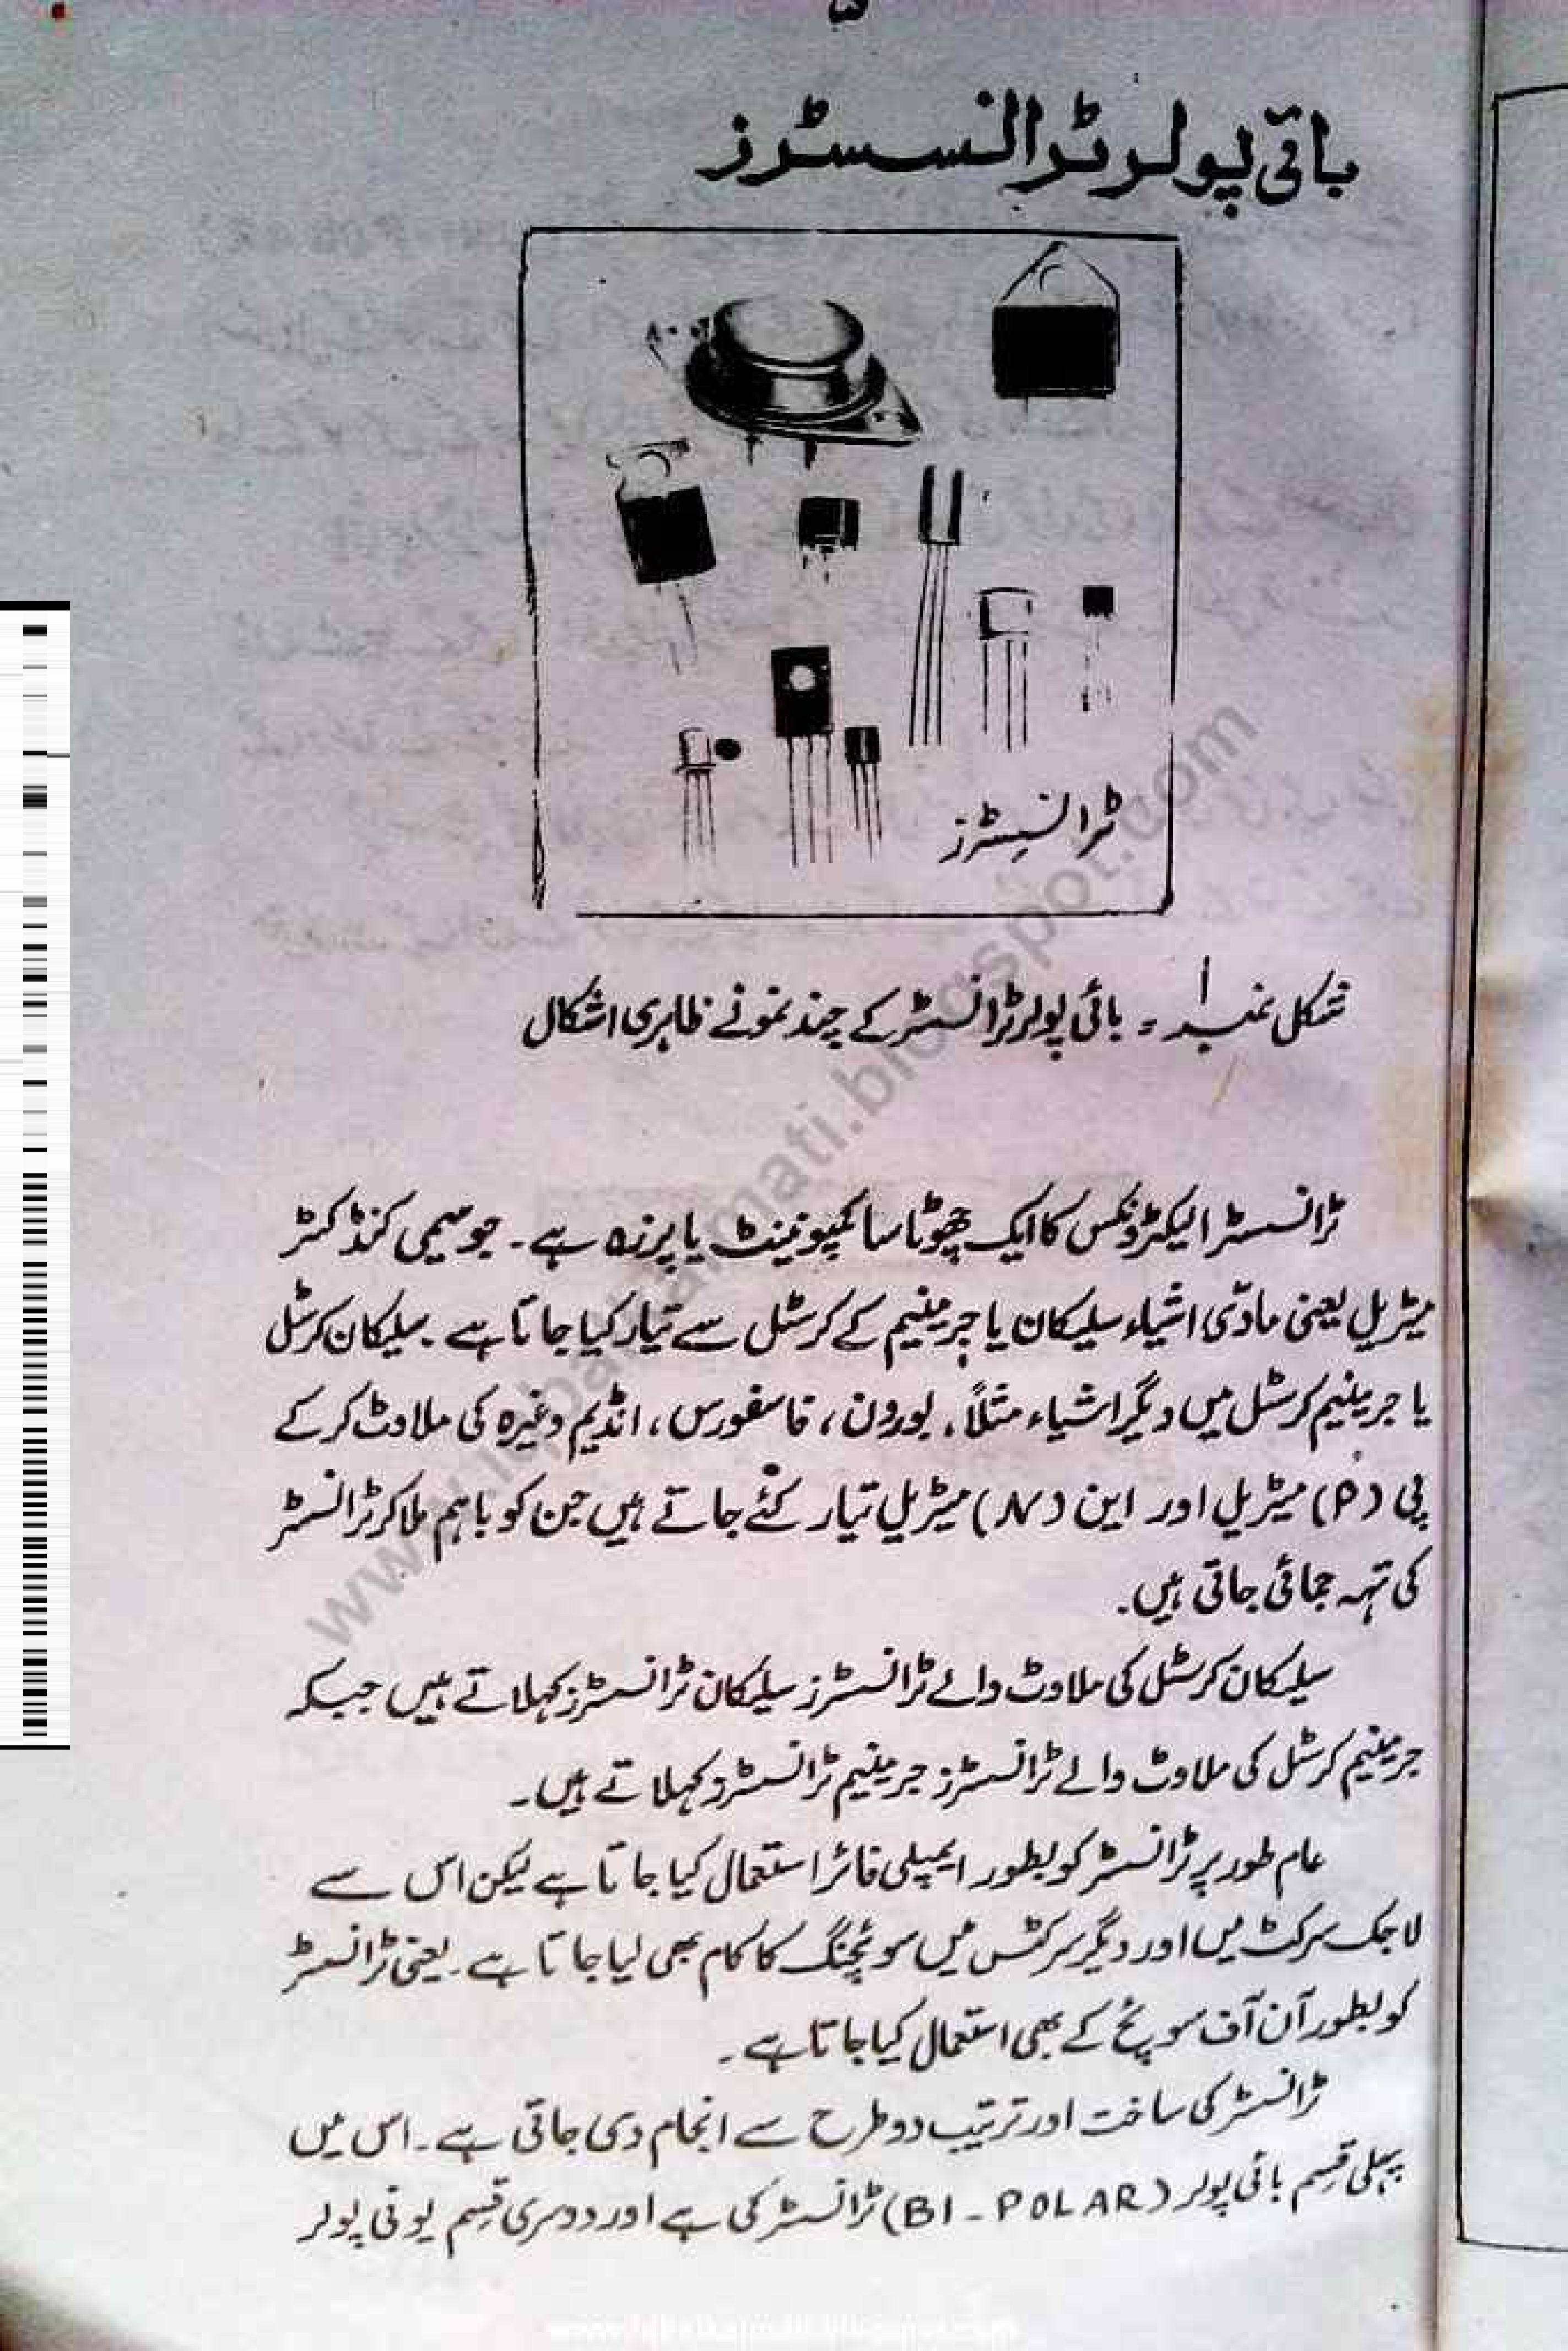 ۵
بائی پولر ٹرانسسٹرز
ٹرانسسٹرز
شکل نمبر ۱ = بائی پولر ٹرانسسٹر کے چند نمونے ظاہری اشکال
ٹرانسسٹر الیکٹرونکس کا ایک چھوٹا سا کمپونینٹ یا پرزہ ہے۔ جو سیمی کنڈکٹر
میٹریل یعنی مادّی اشیاء سلیکان یا جرمینیم کے کرسٹل سے تیار کیا جاتا ہے۔ سلیکان کرسٹل
یا جرمینیم کرسٹل میں دیگر اشیاء مثلاً، بورون، فاسفورس، انڈیم وغیرہ کی ملاوٹ کر کے
پی (P) میٹریل اور این (N) میٹریل تیار کئے جاتے ہیں جن کو باہم ملا کر ٹرانسسٹر
کی تہہ جمائی جاتی ہیں۔
سلیکان کرسٹل کی ملاوٹ والے ٹرانسسٹرز سلیکان ٹرانسسٹرز کہلاتے ہیں جبکہ
جرمینیم کرسٹل کی ملاوٹ والے ٹرانسسٹرز جرمینیم ٹرانسسٹرو کہلاتے ہیں۔
عام طور پر ٹرانسسٹر کو بطور ایمپلی فائر استعمال کیا جاتا ہے لیکن اس سے
لاجک سرکٹ میں اور دیگر سرکٹس میں سوئچنگ کا کام بھی لیا جاتا ہے۔ یعنی ٹرانسسٹر
کو بطور آن آف سوئچ کے بھی استعمال کیا جاتا ہے۔
ٹرانسسٹر کی ساخت اور ترتیب دو طرح سے انجام دی جاتی ہے۔ اس میں
پہلی قسم بائی پولر (BI-POLAR) ٹرانسسٹر کی ہے اور دوسری قسم یونی پولر
www.iqbalkalmati.blogspot.com